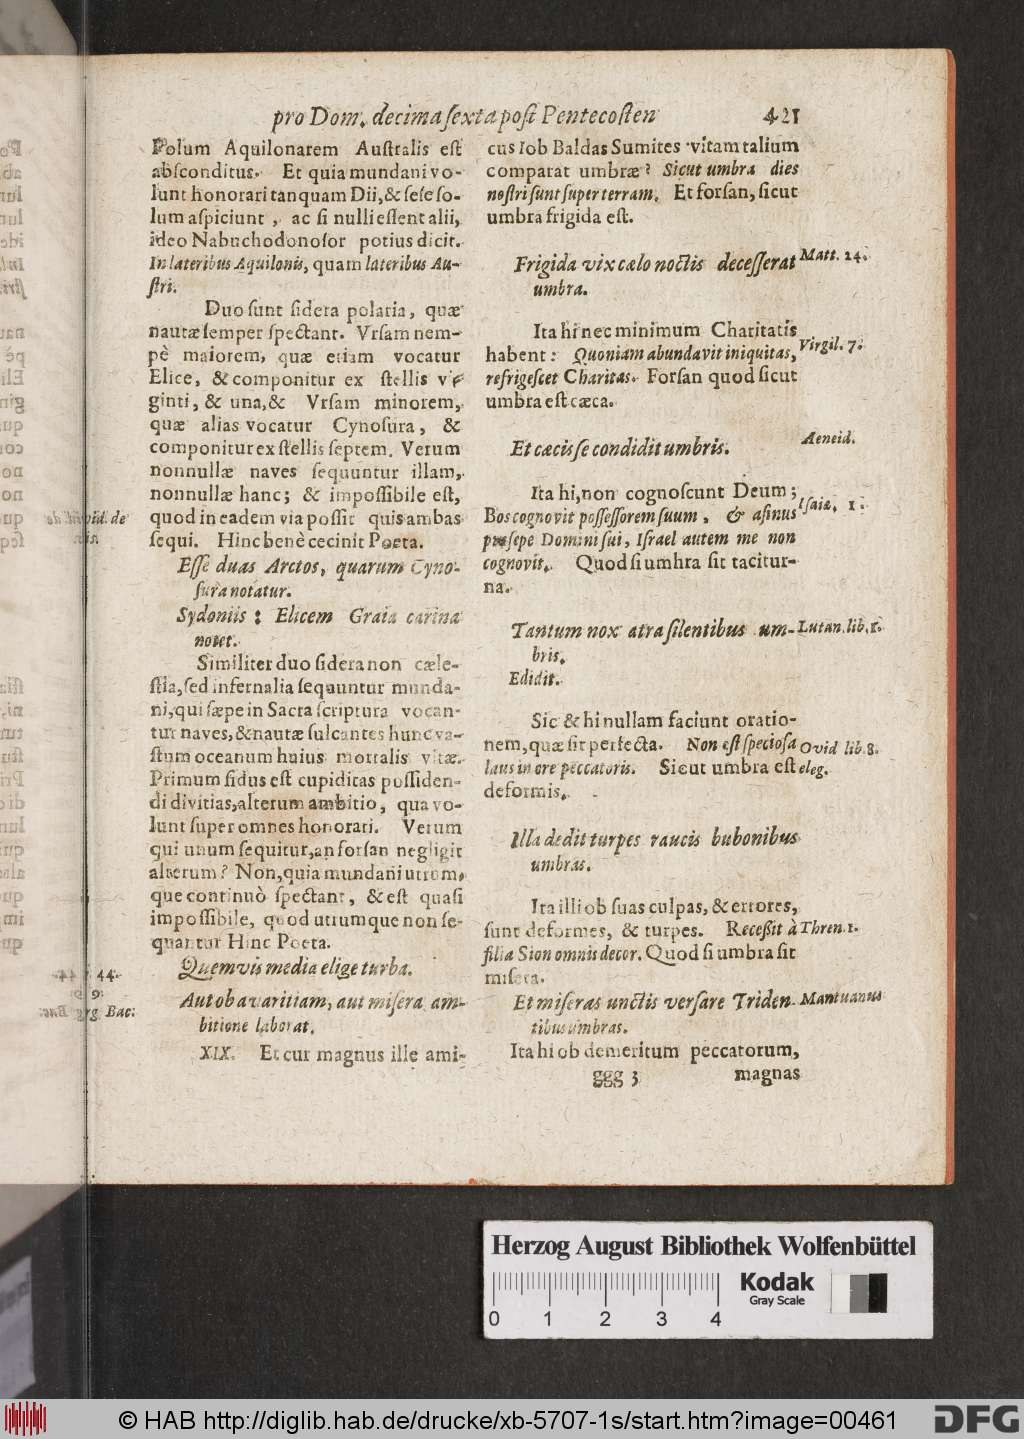 pro Dom. decima sexta post Pentecosten 421
Polum Aquilonarem Australis est
absconditus. Et quia mundani vo-
lunt honorari tanquam Dii, & sese so-
lum aspiciunt, ac si nulli essent alii,
ideo Nabuchodonosor potius dicit.
In lateribus Aquilonis, quam lateribus Au-
stri.
Duo sunt sidera polaria, quæ
nautæ semper spectant. Vrsam nem-
pè maiorem, quæ etiam vocatur
Elice, & componitur ex stellis vi-
ginti, & una, & Vrsam minorem,
quæ alias vocatur Cynosura, &
componitur ex stellis septem. Verum
nonnullæ naves sequuntur illam,
nonnullæ hanc; & impossibile est,
quod in eadem via possit quis ambas
sequi. Hinc benè cecinit Poeta.
Esse duas Arctos, quarum Cyno-
sura notatur.
Sydoniis: Elicem Graia carina
notet.
Similiter duo sidera non cæle-
stia, sed infernalia sequuntur munda-
ni, qui sæpe in Sacra scriptura vocan-
tur naves, & nautæ sulcantes hunc va-
stum oceanum huius mortalis vitæ.
Primum sidus est cupiditas possiden-
di divitias, alterum ambitio, qua vo-
lunt super omnes honorari. Verum
qui unum sequitur, an forsan negligit
alterum? Non, quia mundani utrom-
que continuò spectant, & est quasi
impossibile, quod utrumque non se-
quantur Hinc Poeta.
Quemvis media elige turba.
Aut ob avaritiam, aut misera am-
bitione laborat.
XIX. Et cur magnus ille ami-
vid. de
44.
9:
Bac:
cus Iob Baldas Sumites vitam talium
comparat umbræ? Sicut umbra dies
nostri sunt super terram. Et forsan, sicut
umbra frigida est.
Frigida vix cælo noctis decesserat
umbra.
Ita hi nec minimum Charitatis
habent: Quoniam abundavit iniquitas,
refrigescet Charitas. Forsan quod sicut
umbra est cæca.
Et cæcis se condidit umbris.
Ita hi, non cognoscunt Deum;
Bos cognovit possessorem suum, & asinus
præsepe Domini sui, Israel autem me non
cognovit. Quod si umhra sit tacitur-
na.
Tantum nox atra silentibus um-
bris.
Edidit.
Sic & hi nullam faciunt oratio-
nem, quæ sit perfecta. Non est speciosa
laus in ore peccatoris. Sicut umbra est
deformis.
Illa dedit turpes raucis bubonibus
umbras.
Ita illi ob suas culpas, & errores,
sunt deformes, & turpes. Recessit à
filia Sion omnis decor. Quod si umbra sit
misera.
Et miseras unctis versare Triden-
tibus umbras.
Ita hi ob demeritum peccatorum,
ggg 3 magnas
Matt. 24.
Virgil. 7.
Aeneid.
Isaiæ. 1.
Lutan. lib. 1.
Ovid lib. 8.
eleg.
Thren. 1.
Mantuanus
Herzog August Bibliothek Wolfenbüttel
0 1 2 3 4
Kodak
Gray Scale
© HAB http://diglib.hab.de/drucke/xb-5707-1s/start.htm?image=00461
DFG